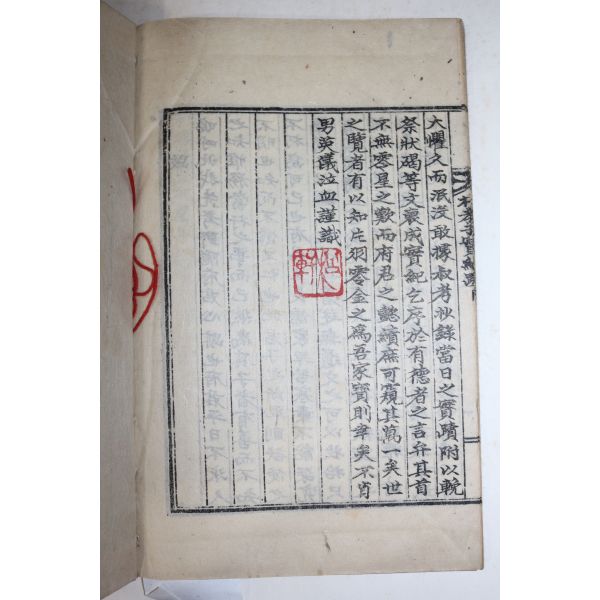 大懼久而泯沒敢據叔考狀錄當日之實蹟附以輓
祭狀碣等文裒成實紀乞序於有德者之言弁其首
不無零星之歎而府君之懿績庶可窺其萬一矣世
之覽者有以知片羽零金之爲吾家寶則幸矣不肖
男英儀泣血謹識
孝子實紀
軒